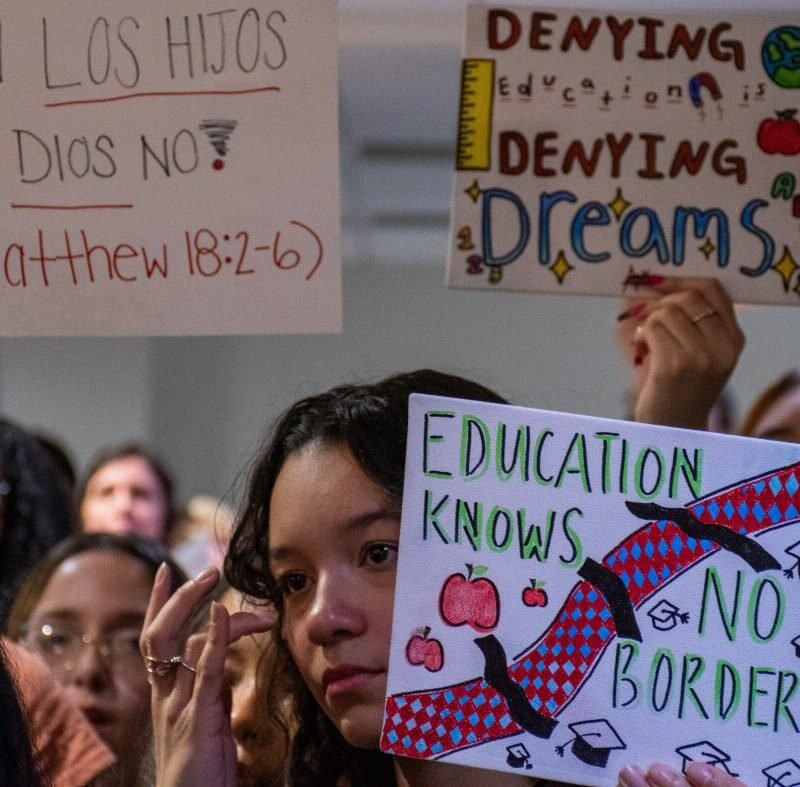 LOS HIJOS
DIOS NO!
atthew 18:2-6)
DENYING
Education is
DENYING
Dreams
EDUCATION
KNOWS
NO
BORDER